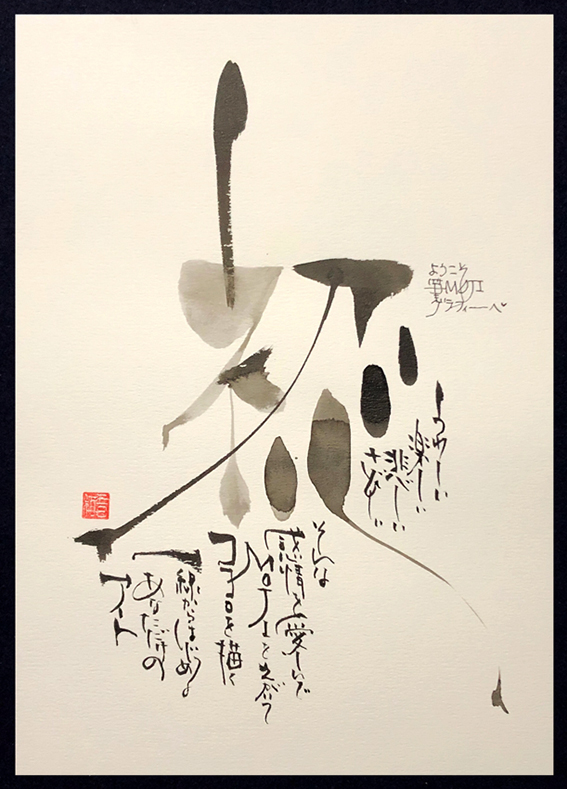 ようこそ
筆MOJI
グラフィーへ♥
うれしい
楽しい
悲しい
さびしい
そんな
感情を愛しんで
MOJIと
ココロを描く
一線からはじめる
あなただけの
アート